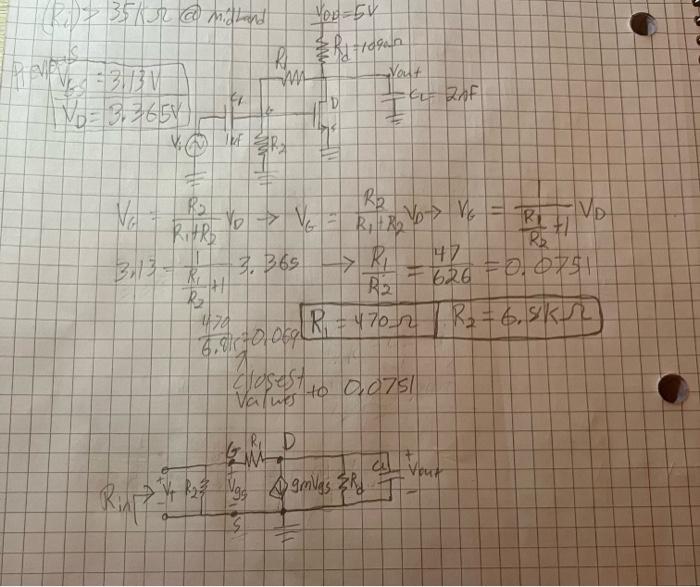 (Ri) > 35KΩ @ midband
VDD=5V
Rd=
R1
Vout
VGS = 3.13V
D
CL= 2nF
VD= 3.365V
C1
G
S
Vi
1nF
R2
VG = R2/(R1+R2) VD → VG = R2/(R1+R2) VD → VG = 1/(R1/R2 +1) VD
3.13 = 1/(R1/R2 +1) 3.365 → R1/R2 = 47/626 = 0.0751
470/6.8k = 0.069
R1 = 470Ω
R2 = 6.8KΩ
closest
values to 0.0751
G R1 D
Rin → + Vi - R2 Vgs gmVgs Rd CL + Vout -
S